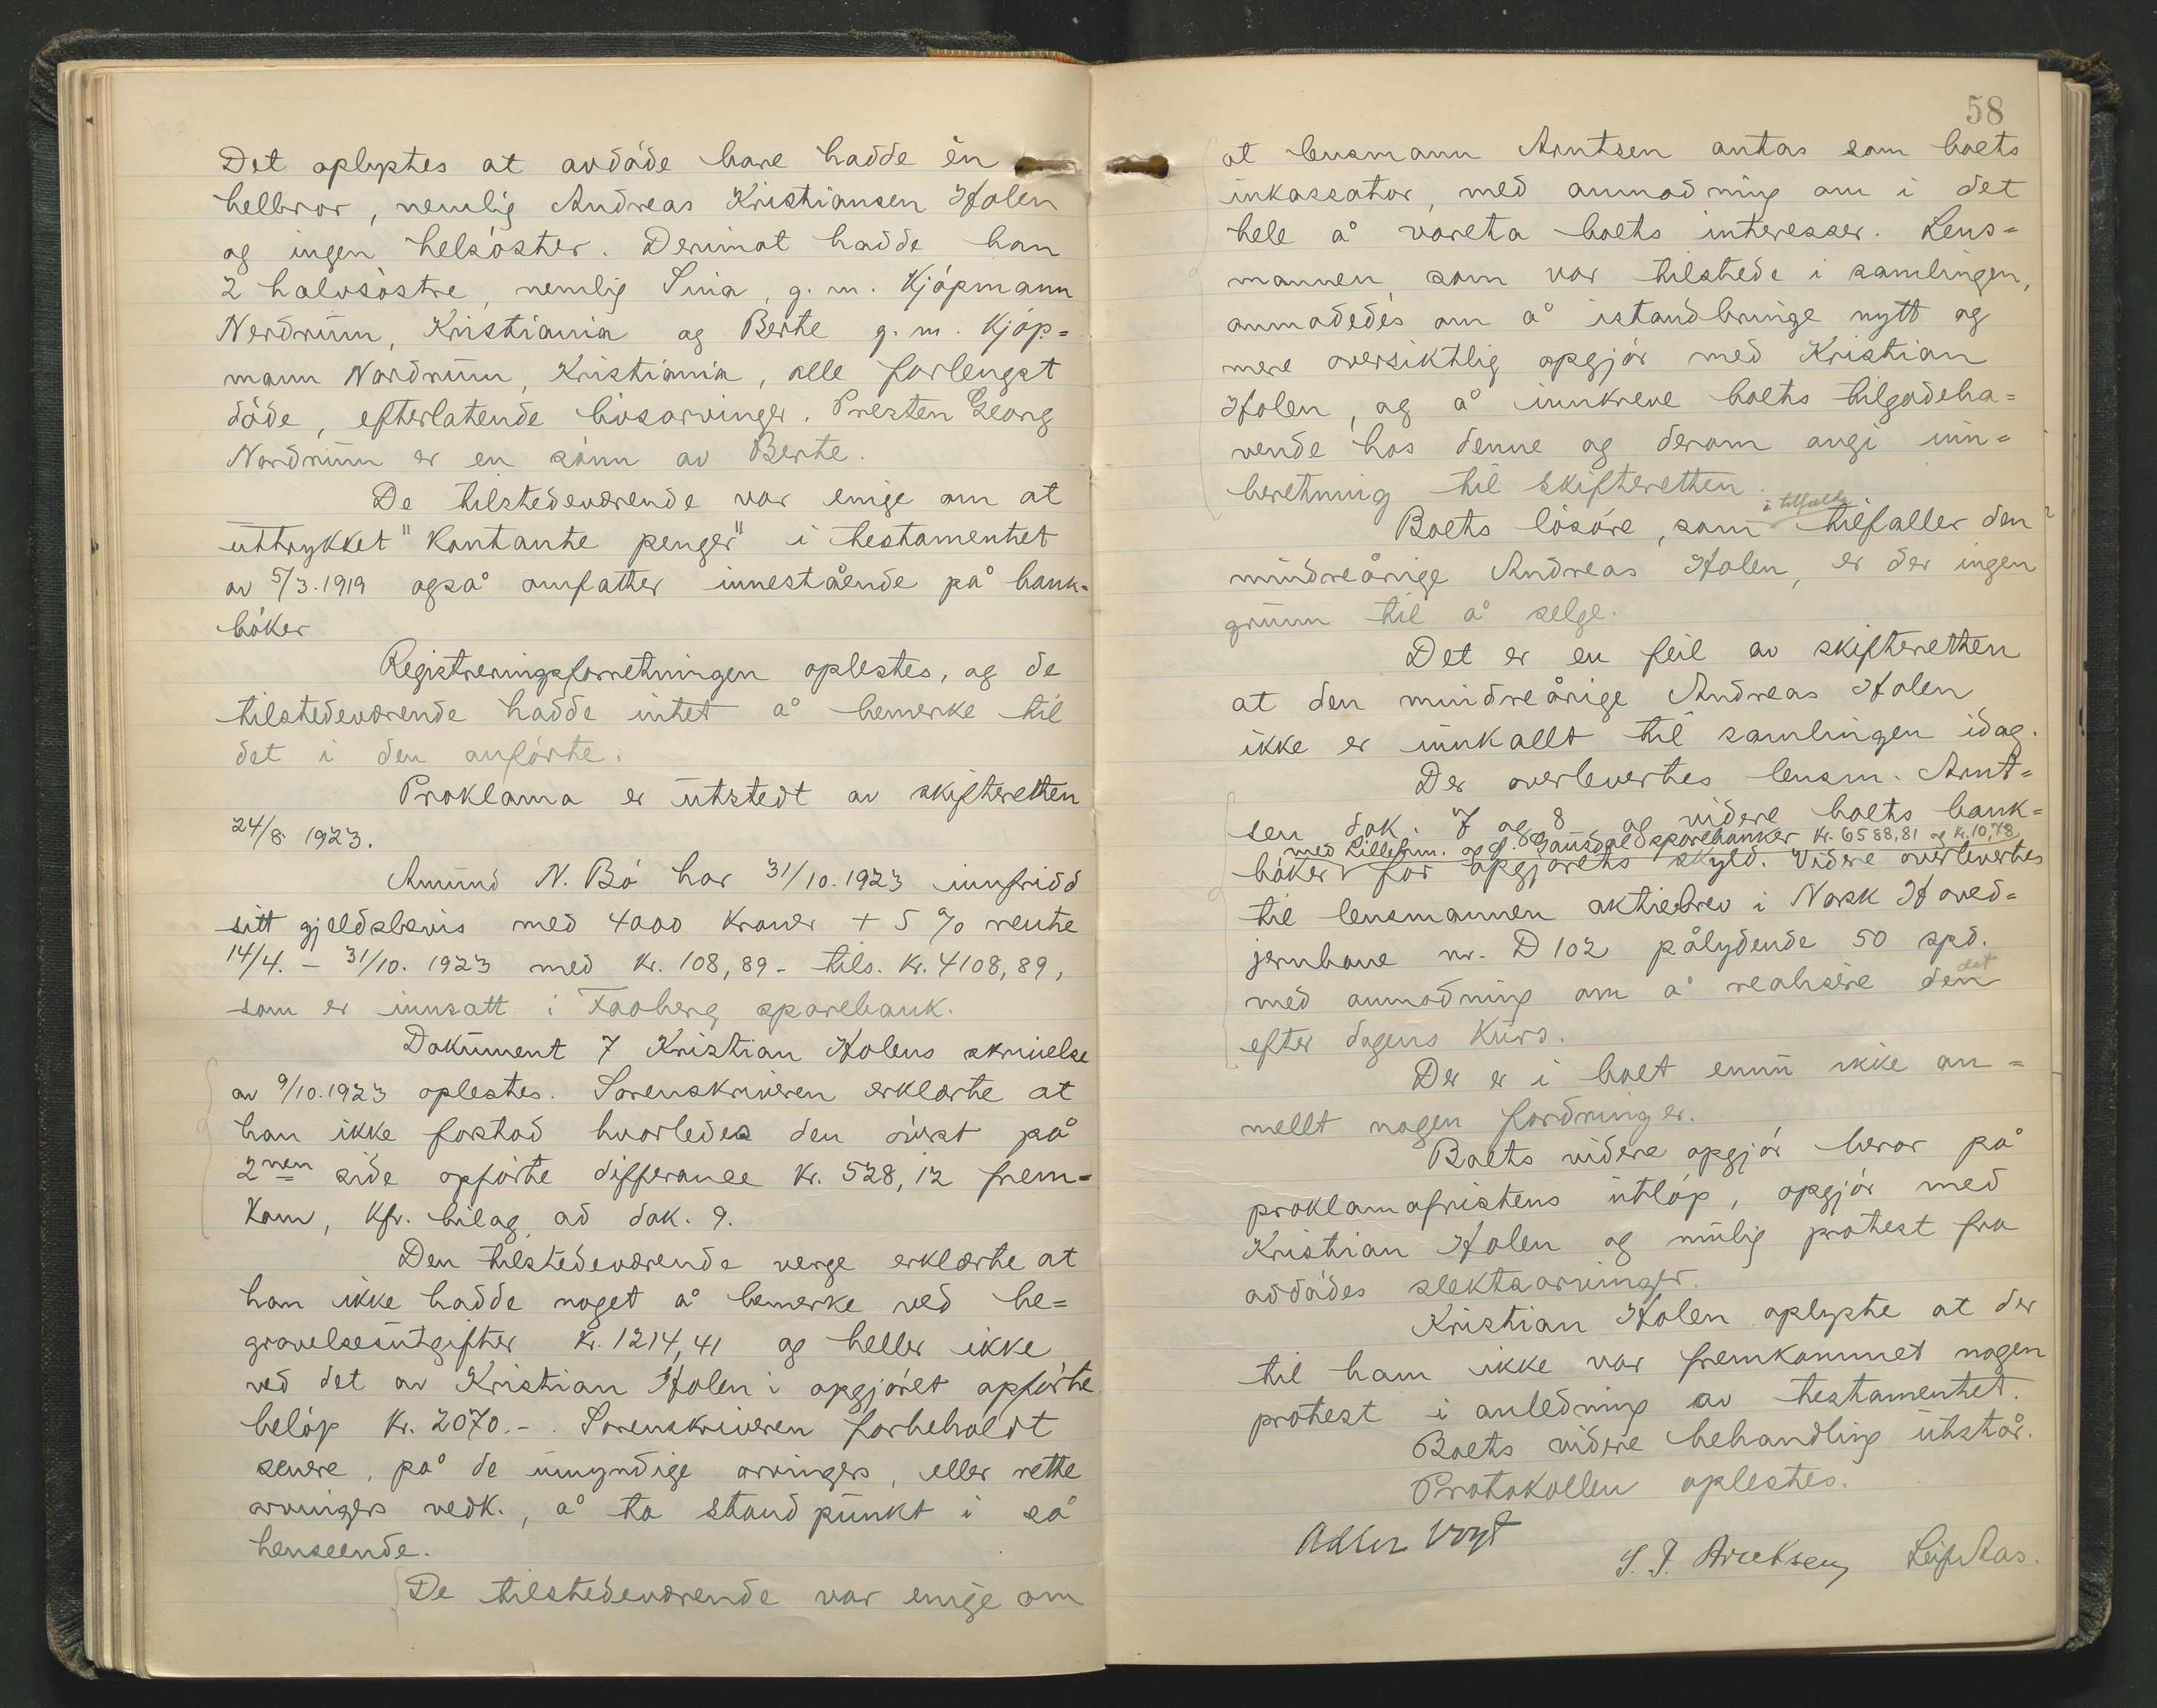 Det oplystes at avdøde bare hadde ên
helbror, nemlig Andreas Kristiansen Holen
og ingen helsøster. Derimot hadde han
2 halvsøstre, nemlig Sina, g. m. Kjøpmann
Nerdrum, Kristiania og Berte g. m. Kjøp=
mann Nordrum, Kristiania, alle forlengst
døde, efterlatende livsarvinger. Presten Georg
Nordrum er en sønn av Berte.
De tilstedeværende var enige om at
uttrykket "Kontante penger" i testamentet
av 5/3.1919 også omfatter innestående på bank=
bøker
Registreringsforretningen oplestes, og de
tilstedeværende hadde intet å bemerke til
det i den anførte.
Proklama er utstedt av skifteretten
24/8 1923.
Amund N. Bø har 31/10.1923 innfridd
sitt gjeldsbevis med 4000 kroner + 5 % rente
14/4. - 31/10. 1923 med kr. 108,89 - tils. kr. 4108,89,
som er innsatt i Faaberg sparebank.
Dokument 7 Kristian Holens skrivelse
av 9/10.1923 oplestes. Sorenskriveren erklærte at
han ikke forstod hvorledes den øverst på
2nen side opførte differanse kr. 528,12 frem=
kom, kfr. bilag ad dok. 9.
Den tilstedeværende verge erklærte at
han ikke hadde noget å bemerke ved be=
gravelsesutgifter kr. 1214,41 og heller ikke
ved det av Kristian Holen i opgjøret opførte
beløp kr. 2070.-. Sorenskriveren forbeholdt
senere, på de umyndige arvingers, eller rette
arvingers vedk., å ta standpunkt i så
henseende.
De tilstedeværende var enige om
58
at lensmann Arntsen antas som boets
inkassator, med anmodning om i det
hele å vareta boets interesser. Lens=
mannen, som var tilstede i samlingen,
anmodedes om å istandbringe nytt og
mere oversiktlig opgjør med Kristian
Holen, og å innkreve boets tilgodeha=
vende hos denne og derom angi inn=
beretning til skifteretten.
i tilfælde
Boets løsøre, som tilfaller den
mindreårige Andreas Holen, er der ingen
grunn til å selge.
Det er en feil av skifteretten
at den mindreårige Andreas Holen
ikke er innkallt til samlingen idag.
Der overlevertes lensm. Arnt=
sen dok. 7 og 8 og videre boets bank=
med Lillehm. og Ø. Gausdal sparebanker kr. 6588,81 og kr. 10,78
bøker for opgjørets skyld. Videre overlevertes
til lensmannen aktiebrev i Norsk Hoved=
jernbane nr. D 102 pålydende 50 spd.
det
med anmodning om å realisere den
efter dagens kurs.
Der er i boet ennu ikke an=
mellt nogen fordringer.
Boets videre opgjør beror på
proklamafristens utløp, opgjør med
Kristian Holen og mulig protest fra
avdødes slektsarvinger.
Kristian Holen oplyste at der
til ham ikke var fremkommet nogen
protest i anledning av testamentet.
Boets videre behandling utstår.
Protokollen oplestes.
Adler Vogt
S. J. Arntsen Leif Aas.